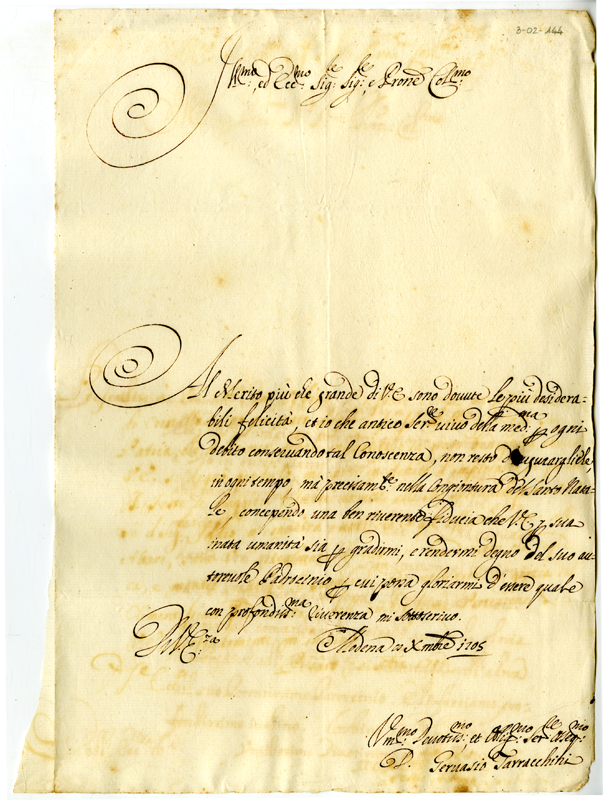 3-02-144
Ill:mo, ed Ecc:mo Sig:re Sig:re, e Prone Coll:mo
Al Merito più che grande di V.E. sono dovute le più desidera=
bili felicità, et io che antico Ser:re vivo della med:ma p ogni
debito conservando tal Conoscenza, non resto d'auguragliele
in ogni tempo, mà precisam:te nella Congiontura del Santo Nata=
le, concependo una ben riverente fiducia che V.E. p sua
inata umanità sia p gradirmi, e rendermi degno del suo au=
torevole Padrocinio p cui possa gloriarmi d'essere quale
con profondiss:ma riverenza mi sottoscrivo.
Di V.E:za Modena Xmbre 1705
Um:mo Devotis:mo et Ser:re
D. Gervasio Tarracchini